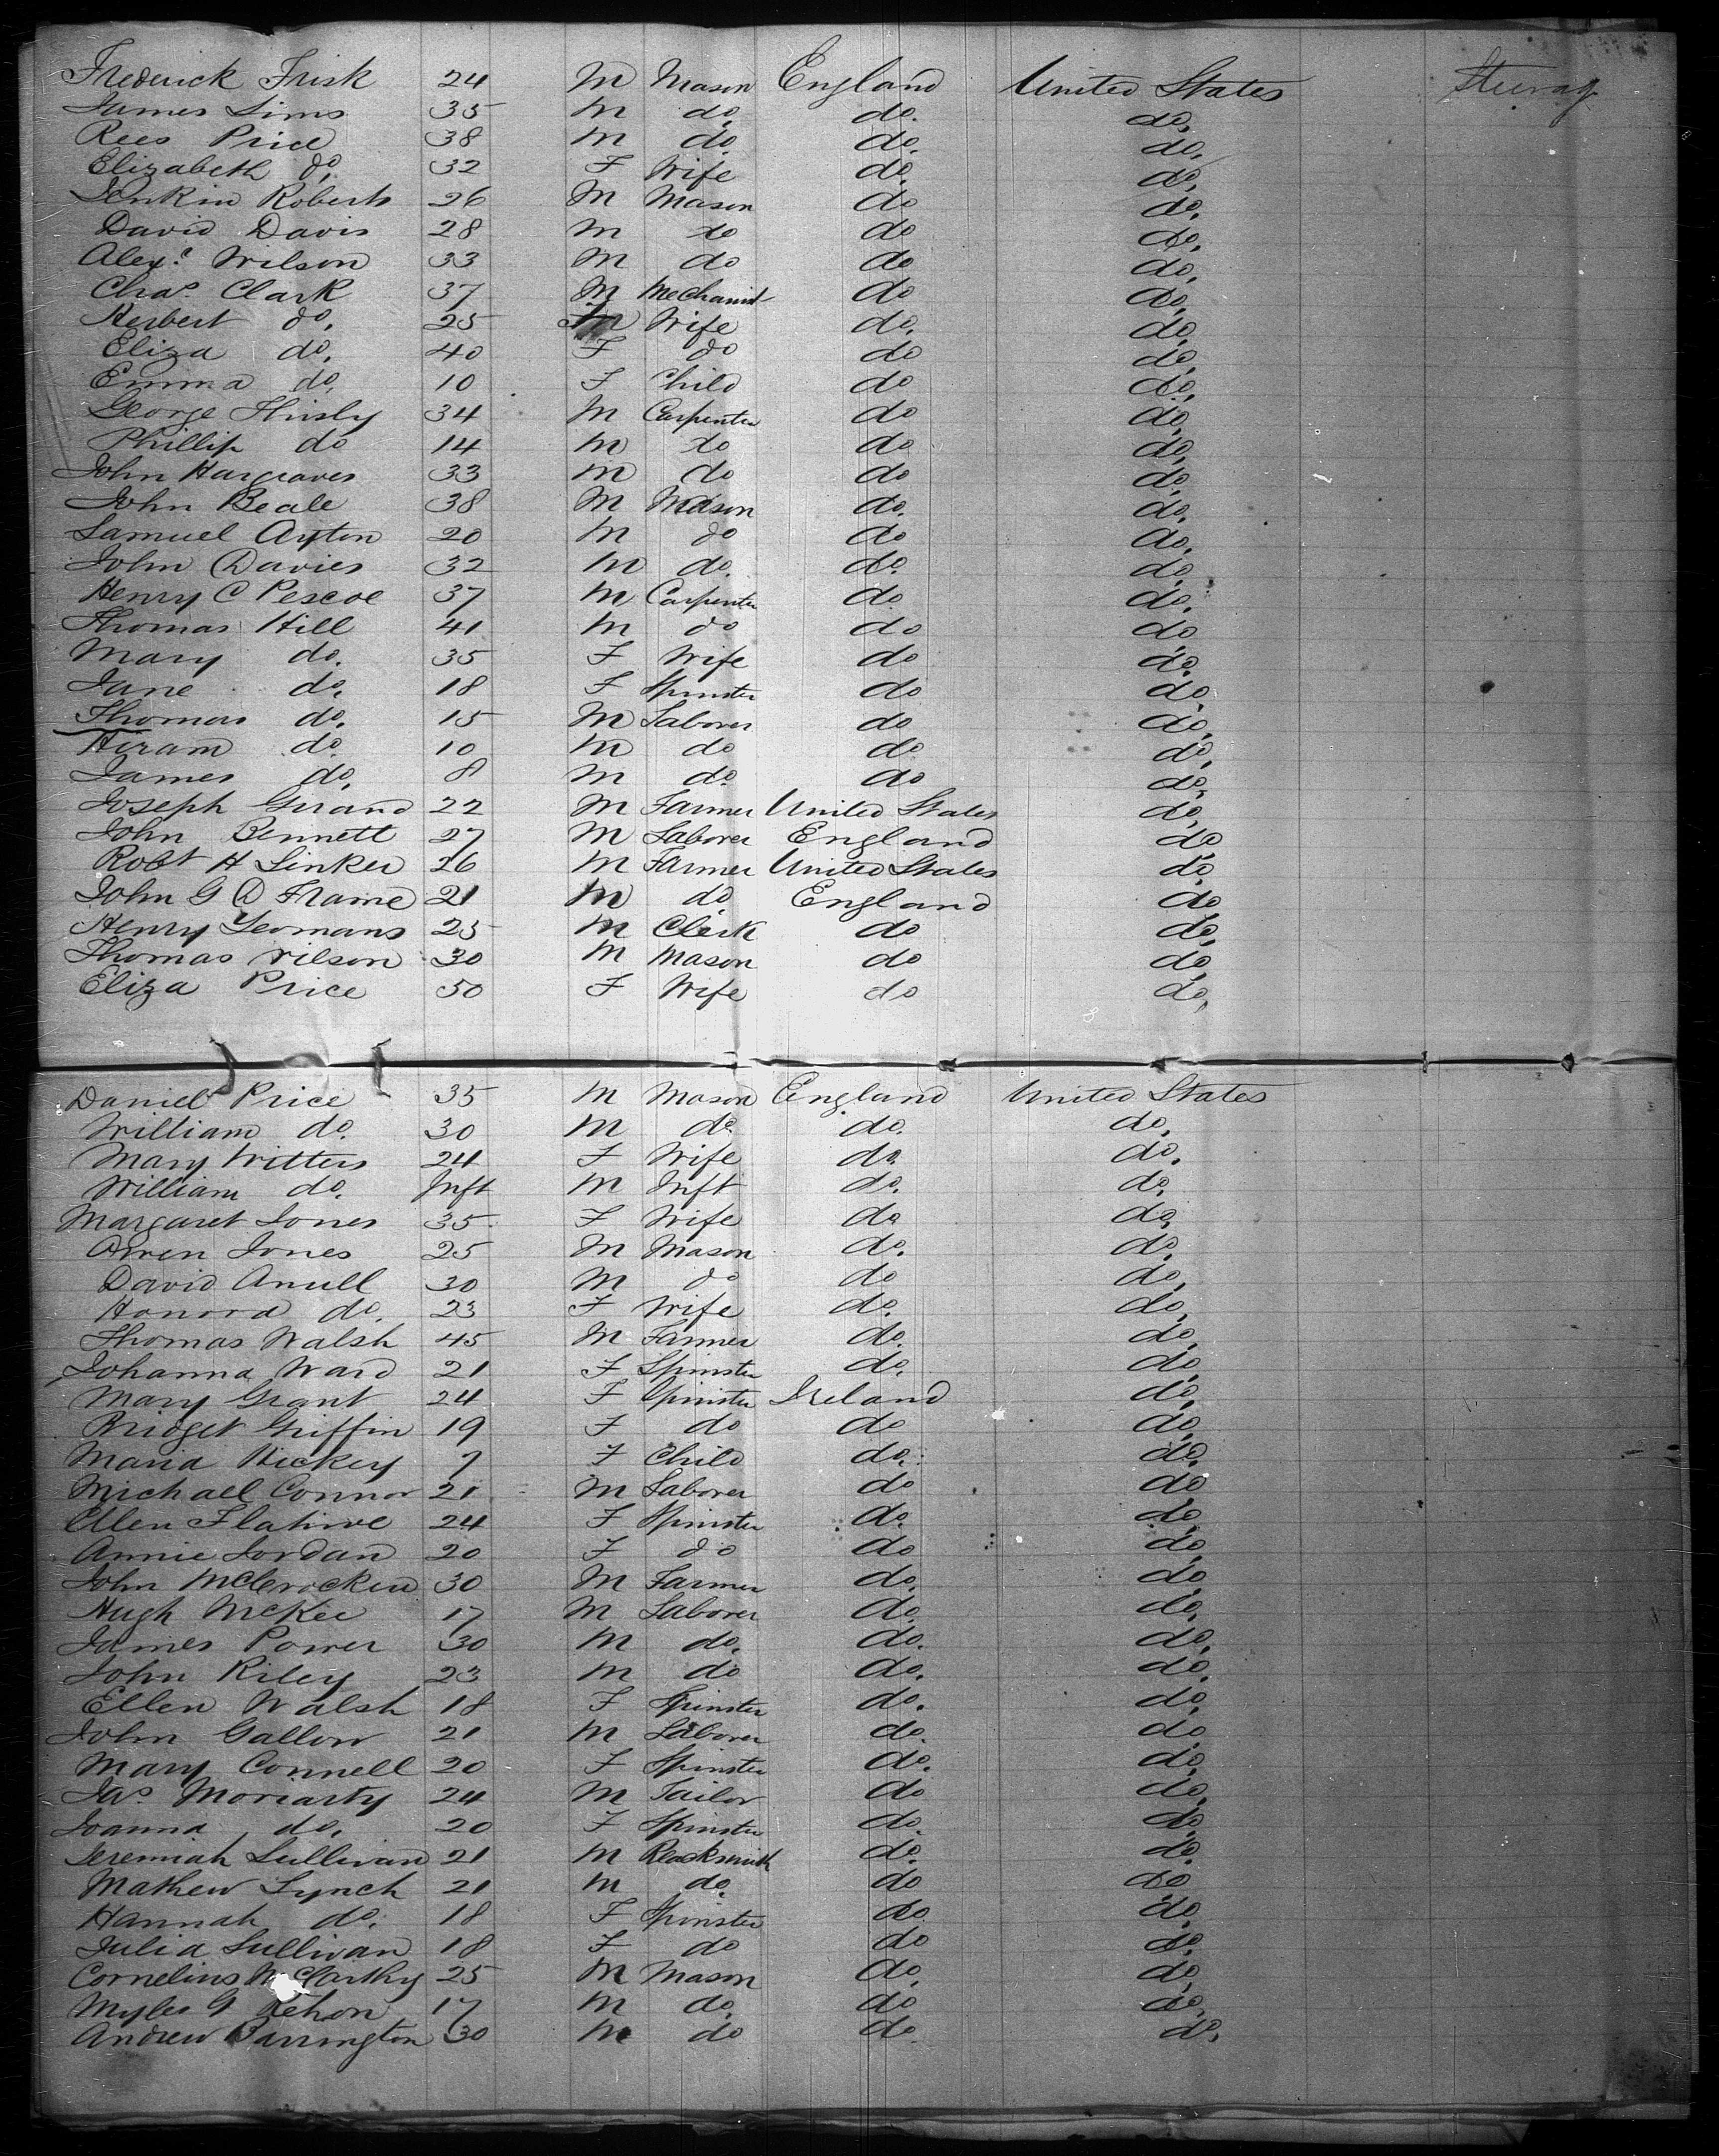 Frederick Frisk 24 M Mason England United States Steerag
James Sims 35 M do. do. do.
Rees Price 38 M do. do. do.
Elizabeth do. 32 F Wife do. do.
Jenkin Roberts 26 M Mason do do.
David Davis 28 M do do do.
Alexr. Wilson 33 M do do do.
Chas. Clark 37 M Mechanist do do.
Herbert do. 25 M Wife do. do.
Eliza do. 40 F do do do.
Emma do. 10 F Child do do.
George 34 M Carpenter do do.
Phillip do 14 M do do do.
John Hargraves 33 M do do do.
John Beale 38 M Mason do. do.
Samuel Ayton 20 M do do do.
John Davies 32 M do. do. do.
Henry C Pescoe 37 M Carpenter do do.
Thomas Hill 41 M do do do
Mary do. 35 F Wife do do.
Jane do. 18 F Spinster do do.
Thomas do. 15 M Laborer do do.
Hiram do. 10 M do do do.
James do. 8 M do. do do.
Joseph Girand 22 M Farmer United States do.
John Bennett 27 M Laborer England do
Robt H Linker 26 M Farmer United States do.
John G D Frame 21 M do England do
Henry Yeomans 25 M Clerk do do.
Thomas 30 M Mason do do.
Eliza Price 50 F Wife do do.
Daniel Price 35 M Mason England United States
William do. 30 M do. do. do.
Mary Witters 24 F Wife do. do.
William do. Inft M Inft do. do.
Margaret Jones 35 F Wife do do.
Owen Jones 25 M Mason do. do.
David Anull 30 M do do do.
Honora do. 23 F Wife do. do.
Thomas Walsh 45 M Farmer do. do.
Johanna Ward 21 F Spinster do. do.
Mary Grant 24 F Spinster Ireland do.
Bridget Griffin 19 F do do do.
Maria Hickey 7 F Child do. do.
Michael Connor 21 M Laborer do do
Ellen 24 F Spinster do. do.
Annie Jordan 20 F do do do.
John McCrocken 30 M Farmer do. do.
Hugh McKee 17 M Laborer do. do.
James Power 30 M do. do. do.
John Riley 23 M do do. do.
Ellen Walsh 18 F Spinster do. do.
John Gallow 21 M Laborer do. do.
Mary Connell 20 F Spinster do. do.
Jas. Moriarty 24 M Tailor do do.
Joanna do. 20 F Spinster do. do.
Jeremiah Sullivan 21 M Blacksmith do. do.
Mathew Lynch 21 M do. do do
Hannah do. 18 F Spinster do. do.
Julia Sullivan 18 F do do do.
Cornelius McCarthy 25 M Mason do. do.
Myles G 17 M do. do do.
Andrew Barrington 30 M do do do.